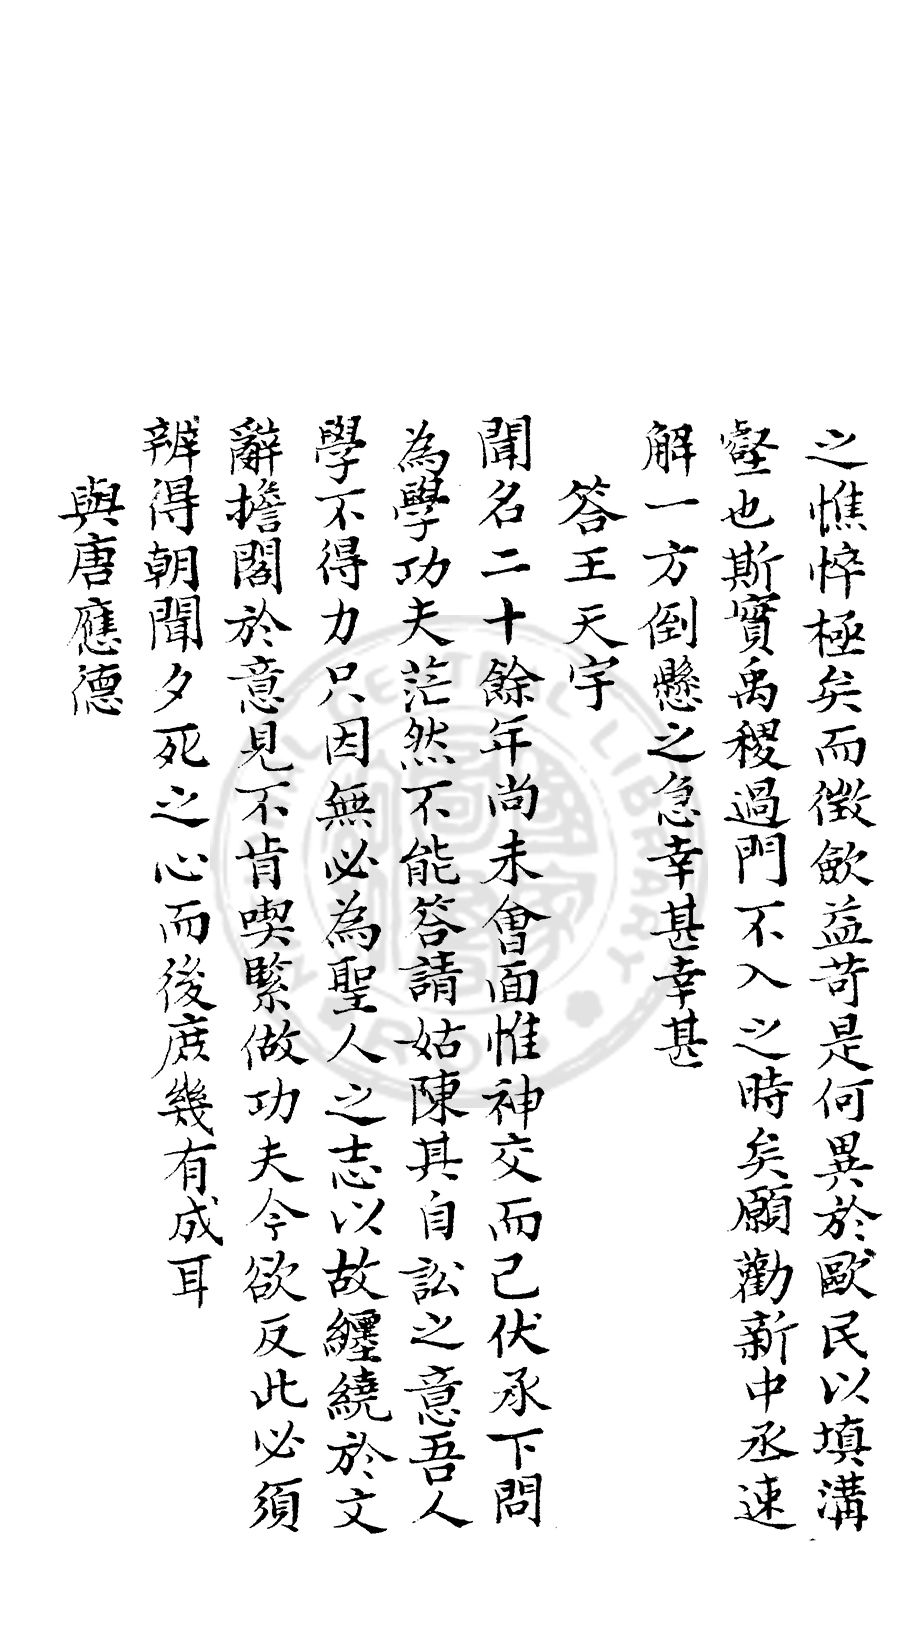 之憔悴極矣而徵歛益苛是何異於歐民以填溝
壑也斯實禹稷過門不入之時矣願勸新中丞速
解一方倒懸之急幸甚幸甚
答王天宇
聞名二十餘年尚未會面惟神交而已伏承下問
為學功夫茫然不能答請姑陳其自訟之意吾人
學不得力只因無必為聖人之志以故纏繞於文
辭擔閣於意見不肯喫緊做功夫今欲反此必須
辨得朝聞夕死之心而後庶幾有成耳
與唐應德